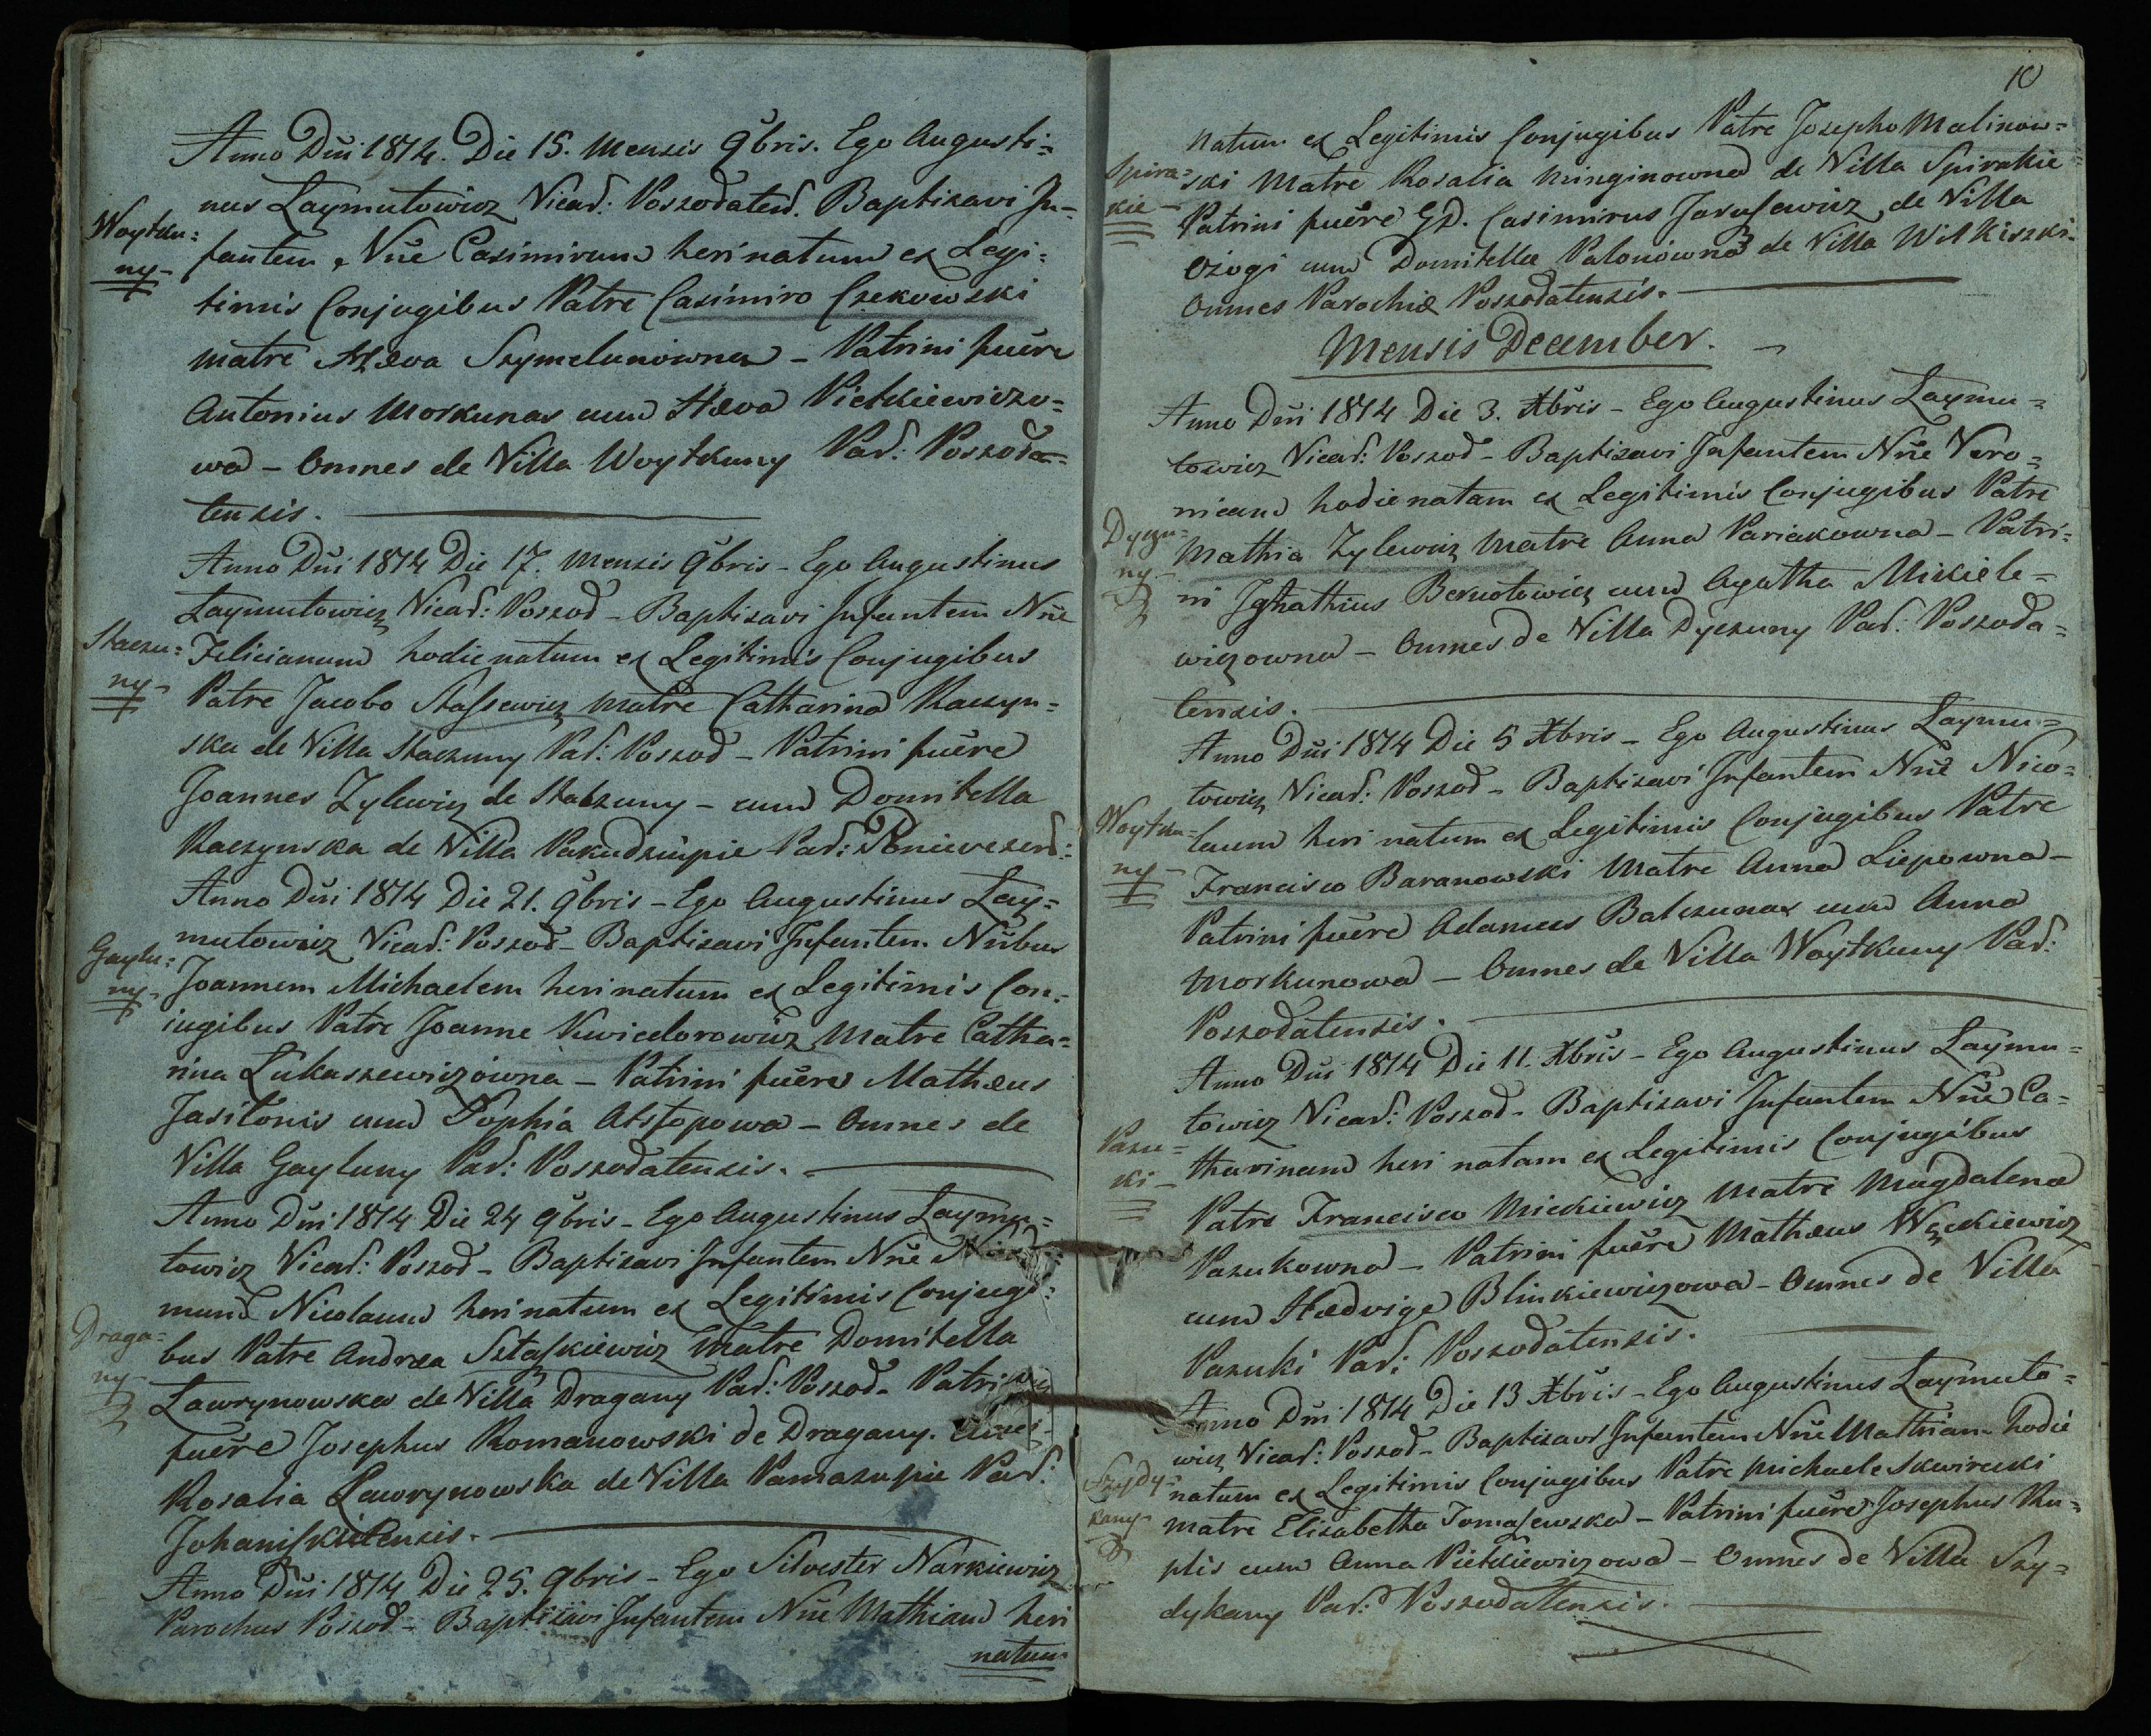 Anno Dñi 1814. Die 15. Mensis 9bris. Ego Augusti=
nus Laymutowicz Vicar: Poszodaten. Baptisavi In-
Woytku=
ny-
fantem, Nñe Casimirum heri natum ex Legi=
timis Conjugibus Patre Casimiro Czekowski
Matre Hæva Szymelunowna – Patrini fuêre
Antonius Morkunas cum Hæva Pietkiewiczo=
wa – Omnes de Villa Woytkuny Par: Poszoda=
tensis.
Anno Dñi 1814 Die 17. Mensis 9bris – Ego Augustinus
Laymutowicz Vicar: Poszod – Baptisavi Infantem Nñe
Staczu=
ny-
Felicianum hodie natum ex Legitimis Conjugibus
Patre Jacobo Stassewicz Matre Catharina Raczyn=
ska de Villa Staczuny Par: Poszod – Patrini fuêre
Joannes Zylewicz de Staczuny – cum Domitella
Raczynska de Villa Pakudziupie Par: Ponievezen:
Anno Dñi 1814 Die 21. 9bris – Ego Augustinus Lay=
mutowicz Vicar: Poszod – Baptisavi Infantem Nñibus
Gaylu=
ny-
Joannem Michaelem heri natum ex Legitimis Con=
jugibus Patre Joanne Kwiedorowicz Matre Catha=
rina Lukaszewiczowna – Patrini fuêre Mathæus
Jasitonis cum Sophia Atstopowa – Omnes de
Villa Gayluny Par: Poszodatensis.
Anno Dñi 1814 Die 24 9bris – Ego Augustinus Laymu=
towicz Vicar: Poszod – Baptisavi Infantem Nñe
mund Nicolaum heri natum ex Legitimis Conjugi=
Draga=
ny-
bus Patre Andrea Sztaskiewicz Matre Domitella
Lawrynowska de Villa Dragany Par: Poszod – Patrini
fuêre Josephus Romanowski de Dragany.
Rosalia Lawrynowska de Villa Pamazupie Par:
Johaniskielensis.
Anno Dñi 1814 Die 25. 9bris – Ego Silvester Narkiewicz
Parochus Poszod – Baptisavi Infantem Nñe Mathiam heri
natum
10
natum ex Legitimis Conjugibus Patre Josepho Malinow=
Spira=
kie-
ski Matre Rosalia Minginowna de Villa Spirakie
Patrini fuêre GD. Casimirus Jarusewicz de Villa
Ożogi cum Domitella Palonowna de Villa Witkiszki.
Omnes Parochiæ Poszodatensis.
Mensis December.
Anno Dñi 1814 Die 3. Xbris – Ego Augustinus Laymu=
towicz Vicar: Poszod – Baptisavi Infantem Nñe Vero=
nicam hodie natam ex Legitimis Conjugibus Patre
Dyczu=
ny-
Mathia Zylewicz Matre Anna Pariakowna – Patri=
ni Ignathius Bernotowicz cum Agatha Mikiele=
wiczowna – Omnes de Villa Dyczuny Par: Poszoda=
tensis.
Anno Dñi 1814 Die 5 Xbris – Ego Augustinus Laymu=
towicz Vicar: Poszod – Baptisavi Infantem Nñe Nico=
Woytku=
ny-
laum heri natum ex Legitimis Conjugibus Patre
Francisco Baranowski Matre Anna Liepowna –
Patrini fuêre Adamus Balczunas cum Anna
Morkunowa – Omnes de Villa Woytkuny Par:
Poszodatensis.
Anno Dñi 1814 Die 11. Xbris – Ego Augustinus Laymu=
towicz Vicar: Poszod – Baptisavi Infantem Nñe Ca=
Pazu=
ki-
tharinam heri natam ex Legitimis Conjugibus
Patre Francisco Mickiewicz Matre Magdalena
Pazukowna – Patrini fuêre Mathæus Węckiewicz
cum Hedvige Blinkiewiczowa – Omnes de Villa
Pazuki Par: Poszodatensis.
Anno Dñi 1814 Die 13 Xbris – Ego Augustinus Laymuto=
wicz Vicar: Poszod – Baptisavi Infantem Nñe Mathiam hodie
Szydy=
kany-
natum ex Legitimis Conjugibus Patre Michaele Skwirecki
Matre Elisabetha Tomasewska – Patrini fuêre Josephus Ku=
plis cum Anna Pietkiewiczowa – Omnes de Villa Szy=
dykany Par: Poszodatensis.